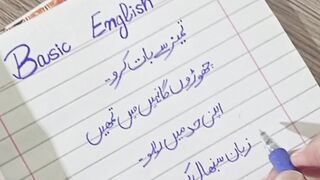 Basic English
تمیز سے بات کرو۔
چھوڑوں گا نہیں میں تمہیں
اپنی حد میں رہو۔
زبان سنبھال کر